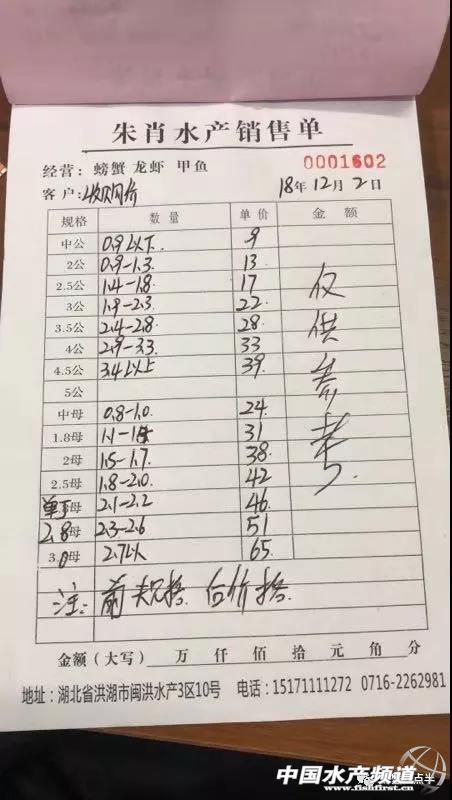 朱肖水产销售单
经营：螃蟹 龙虾 甲鱼 0001602
客户：收购价 18年12月2日
规格 数量 单价 金额
中公 0.9以下 9
2公 0.9-1.3 13
2.5公 1.4-1.8 17
3公 1.9-2.3 22
3.5公 2.4-2.8 28
4公 2.9-3.3 33
4.5公 3.4以上 39
5公
仅供参考
中母 0.8-1.0 24
1.8母 1.1-1.4 31
2母 1.5-1.7 38
2.5母 1.8-2.0 42
母 2.1-2.2 46
2.8母 2.3-2.6 51
3.0母 2.7以 65
注：前规格 后价格
金额（大写） 万 仟 佰 拾 元 角 分
地址：湖北省洪湖市闽洪水产3区10号 电话：15171111272 0716-2262981
中国水产频道
www.fishfirst.cn
点半